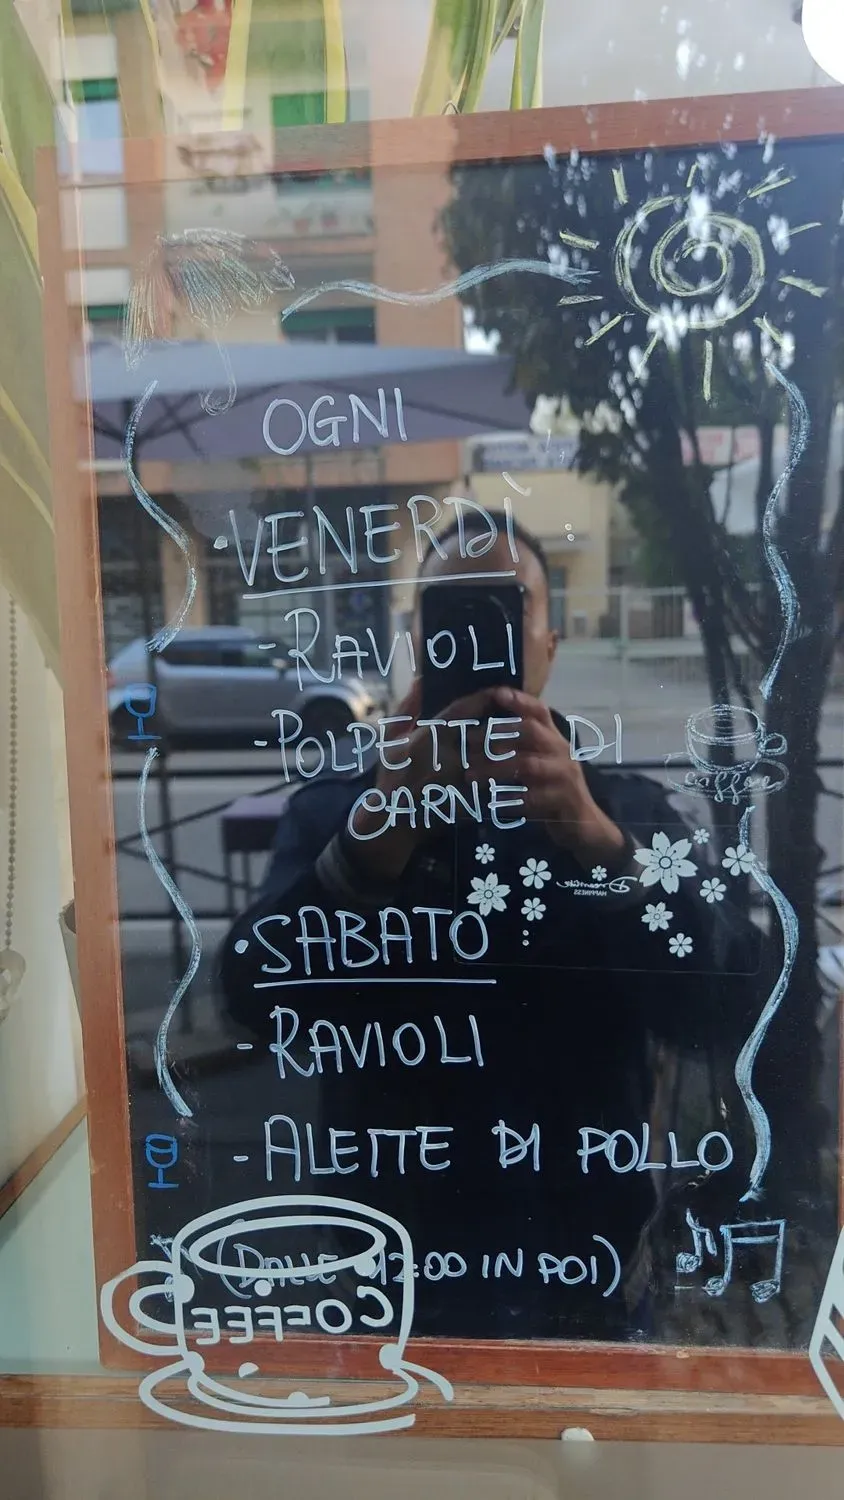 OGNI
•VENERDÌ:
-RAVIOLI
-POLPETTE DI
CARNE
coffee
Dreamlike
HAPPINESS
•SABATO:
-RAVIOLI
-ALETTE DI POLLO
(DALLE 12:00 IN POI)
COFFEE